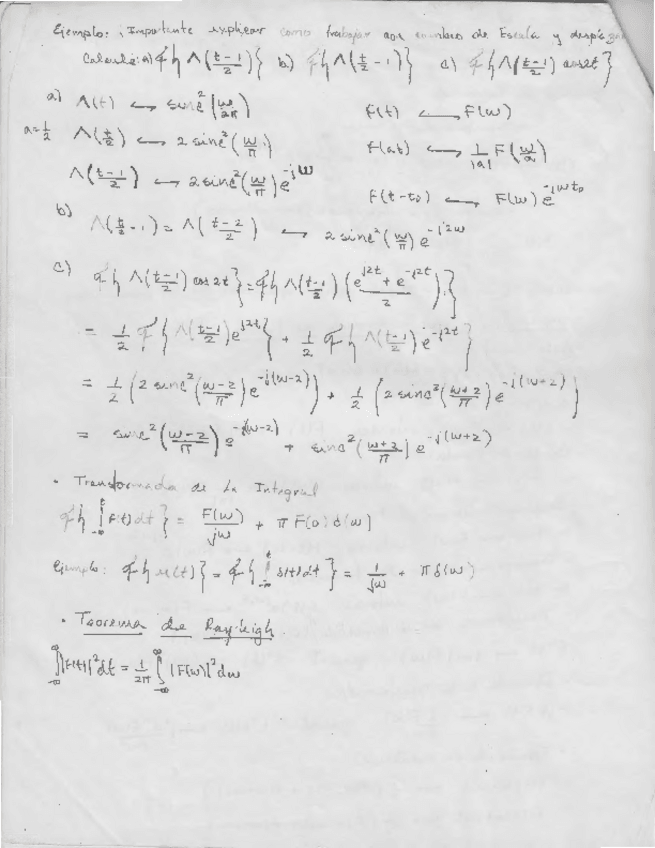 Ejemplo: ¡Importante explicar como trabajar con cambio de Escala y
Calcule: a) F{Λ((t-1)/2)} b) F{Λ(t/2 - 1)} c) F{Λ((t-1)/2) cos2t}
a) Λ(t) ↔ sinc²(ω/2π) F(t) ↔ F(ω)
a=1/2 Λ(t/2) ↔ 2 sinc²(ω/π) F(at) ↔ 1/|a| F(ω/a)
Λ((t-1)/2) ↔ 2 sinc²(ω/π) e^-jω F(t-t₀) ↔ F(ω) e^-jωt₀
b) Λ(t/2 - 1) = Λ((t-2)/2) ↔ 2 sinc²(ω/π) e^-j2ω
c) F{Λ((t-1)/2) cos2t} = F{Λ((t-1)/2) ((e^j2t + e^-j2t)/2)}
= 1/2 F{Λ((t-1)/2) e^j2t} + 1/2 F{Λ((t-1)/2) e^-j2t}
= 1/2 (2 sinc²((ω-2)/π) e^-j(ω-2)) + 1/2 (2 sinc²((ω+2)/π) e^-j(ω+2))
= sinc²((ω-2)/π) e^-j(ω-2) + sinc²((ω+2)/π) e^-j(ω+2)
• Transformada de La Integral
F{∫_-∞^t F(t) dt} = F(ω)/jω + π F(0) δ(ω)
Ejemplo: F{u(t)} = F{∫_-∞^t δ(t) dt} = 1/jω + π δ(ω)
• Teorema de Rayleigh
∫_-∞^∞ |F(t)|² dt = 1/2π ∫_-∞^∞ |F(ω)|² dω